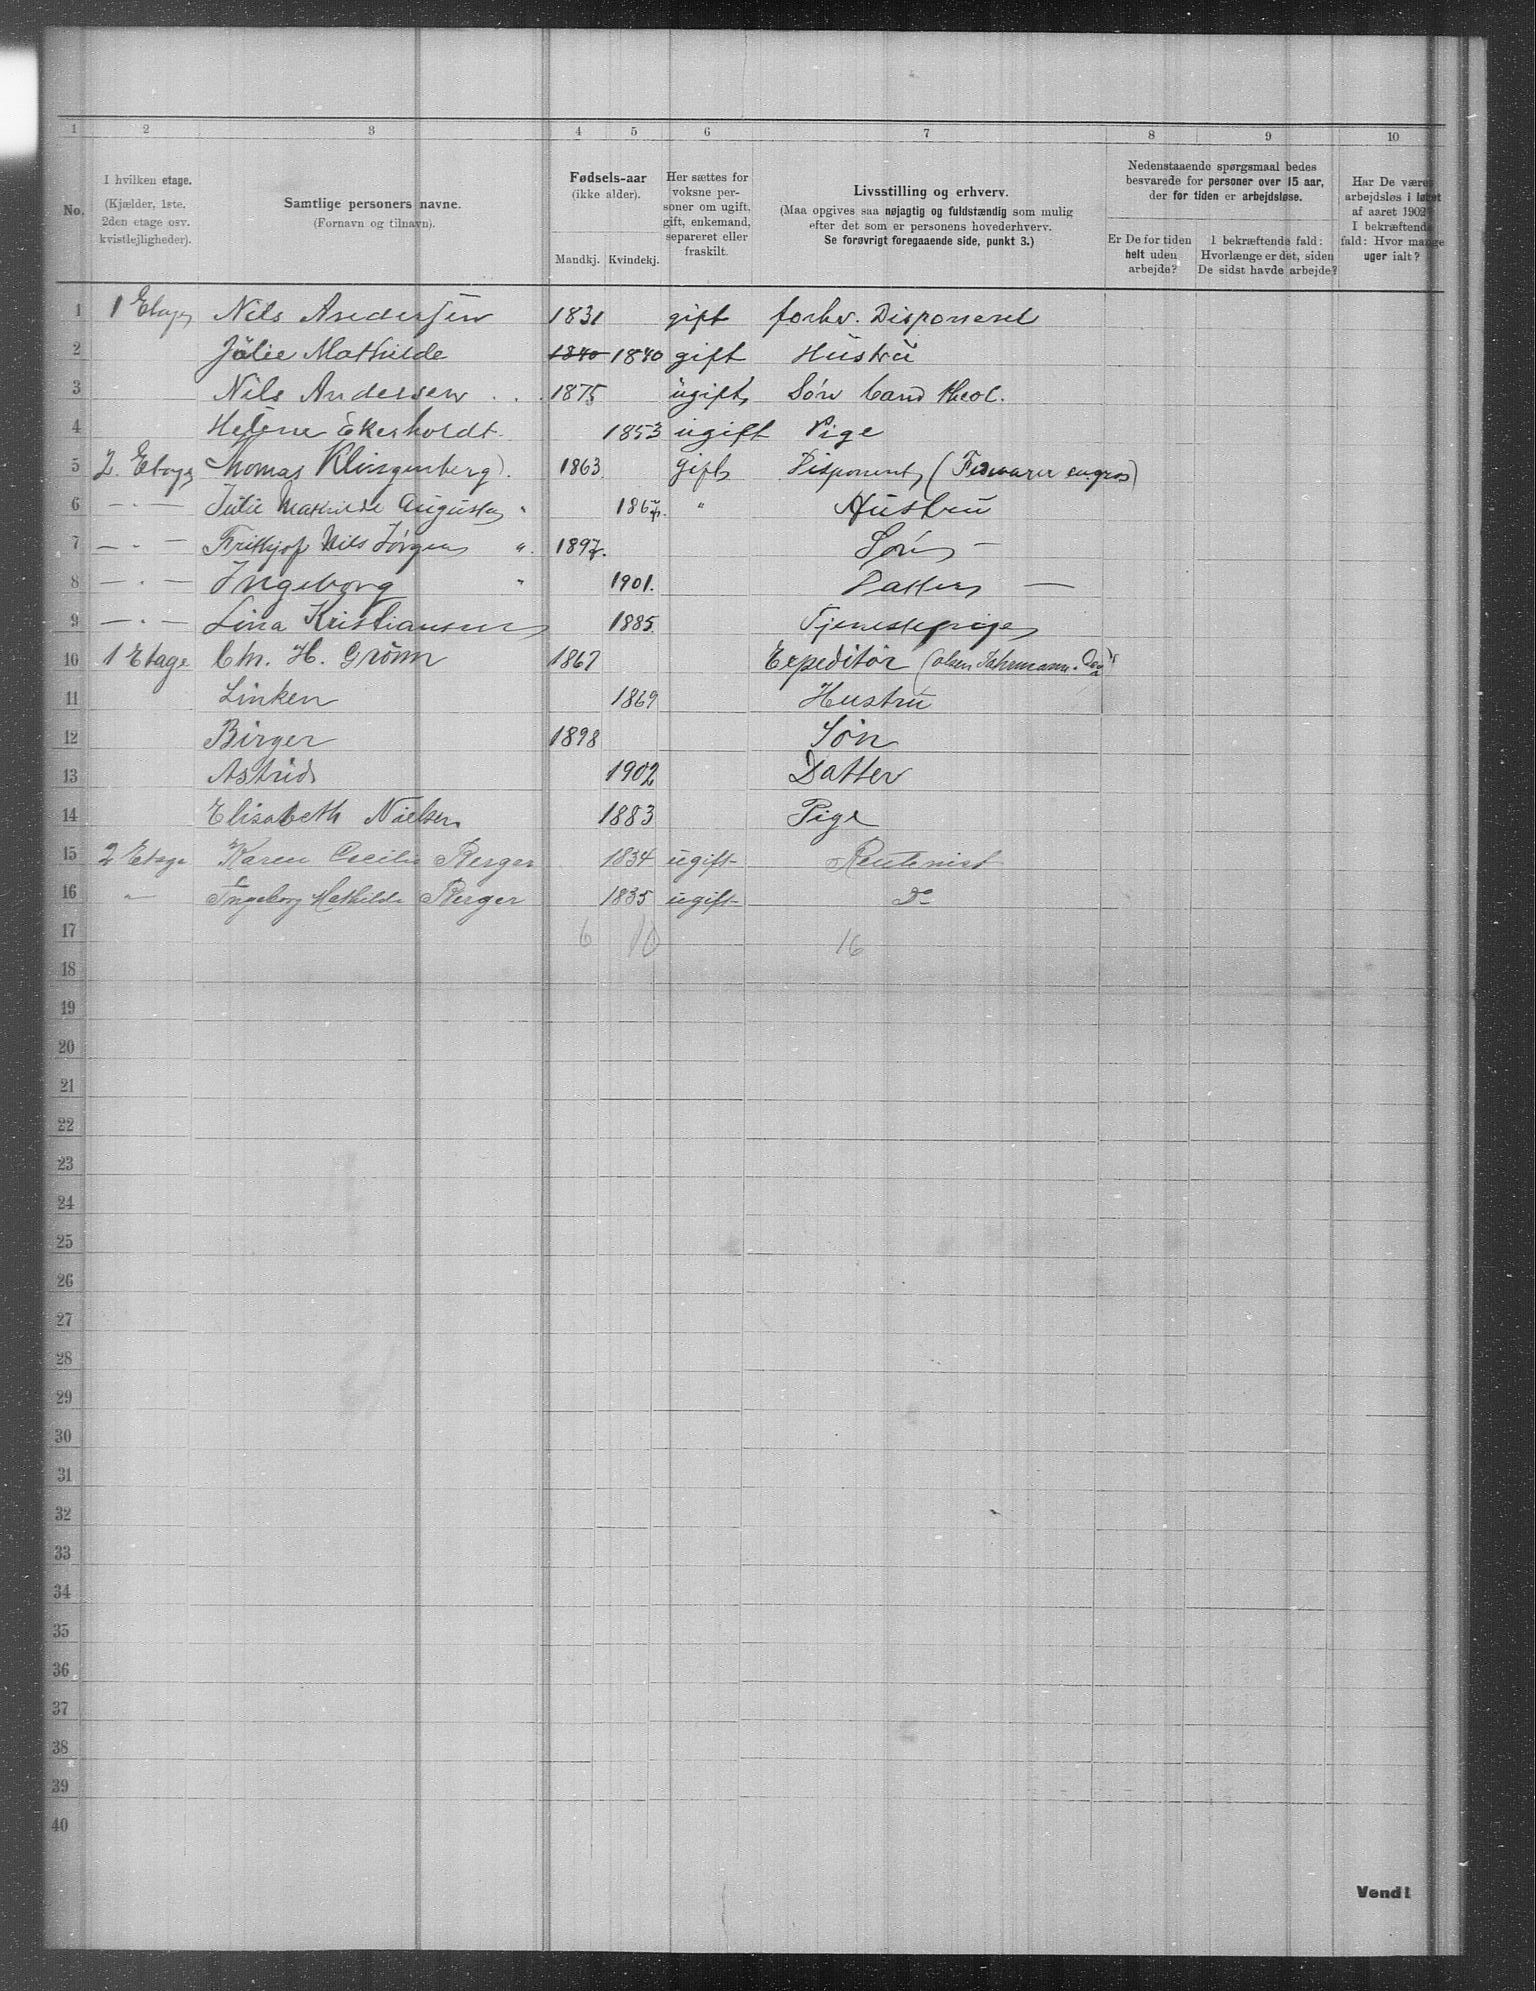 1 2 3 4 5 6 7 8 9 10
No.
I hvilken etage.
(Kjælder, 1ste,
2den etage osv.
kvistlejligheder).
Samtlige personers navne.
(Fornavn og tilnavn).
Fødsels-aar
(ikke alder).
Mandkj. Kvindekj.
Her sættes for
voksne per-
soner om ugift,
gift, enkemand,
separeret eller
fraskilt.
Livsstilling og erhverv.
(Maa opgives saa nøjagtig og fuldstændig som mulig
efter det som er personens hovederhverv.
Se forøvrigt foregaaende side, punkt 3.)
Nedenstaaende spørgsmaal bedes
besvarede for personer over 15 aar,
der for tiden er arbejdsløse.
Er De for tiden
helt uden
arbejde?
I bekræftende fald:
Hvorlænge er det, siden
De sidst havde arbejde?
Har De været
arbejdsløs i løbet
af aaret 1902?
I bekræftende
fald: Hvor mange
uger ialt?
1 1 Etage Nils Andersen 1831 gift forhv. Disponent
2 Julie Mathilde 1840 1840 gift Hustru
3 Nils Andersen . . . 1875 ugift Søn Cand theol.
4 Helene Ekerholdt 1853 ugift Pige
5 2 Etage Thomas Klingenberg . 1863 gift Disponent ( en.gros)
6 — . — Julie Mathilde Augusta " " Hustru
7 — . — Frithjof Nils Jørgen " 1897. Søn —
8 — . — Ingeborg " 1901. Datter —
9 — . — Lina Kristiansen 1885 Tjenestepige
10 1 Etage Chr. H. Grønn 1867 Expeditør
11 Linken 1869 Hustru
12 Birger 1898 Søn
13 Astrid 1902 Datter
14 Elisabeth Nielsen 1883 Pige
15 2 Etage Karen Cecilie Berger 1834 ugift Rentenist
16 — Ingeborg Mathilde Berger 1835 ugift Do
17 6 10 16
18
19
20
21
22
23
24
25
26
27
28
29
30
31
32
33
34
35
36
37
38
39
40
Vend!